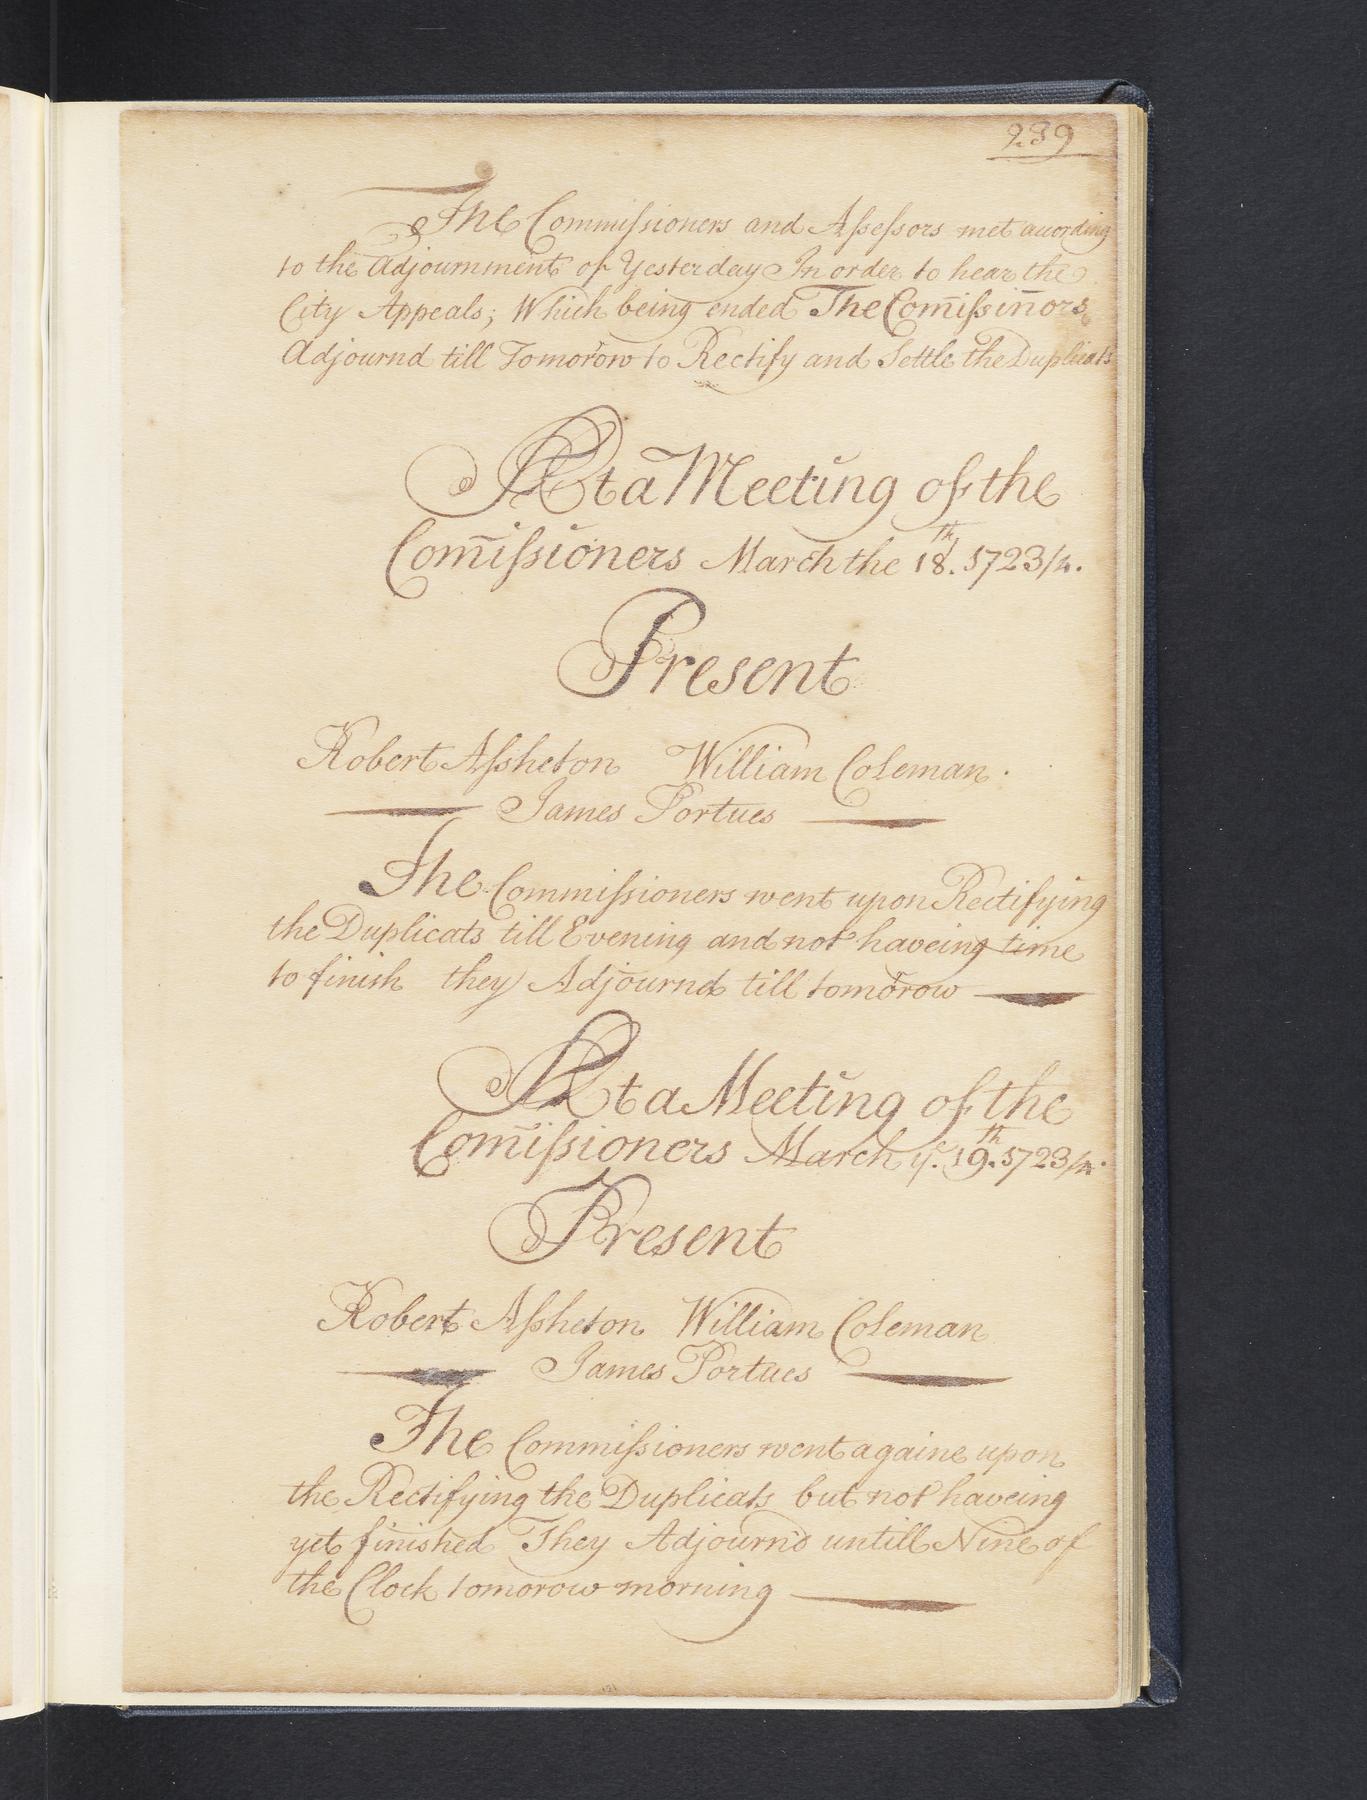 239
The Commissioners and Assessors met acording
to the Adjournment of Yesterday In order to hear the
City Appeals; Which being ended The Com̄issin̄ors
Adjournd till Tomorow to Rectify and Settle the Duplicats
At a Meeting of the
Com̄issioners March the 18.th 1723/4.
Present
Robert Assheton William Coleman.
James Portues
The Commissioners went upon Rectifying
the Duplicats till Evening and not haveing time
to finish they Adjournd till tomorow
At a Meeting of the
Com̄issioners March ye. 19.th 1723/4.
Present
Robert Assheton William Coleman
James Portues
The Commissioners went againe upon
the Rectifying the Duplicats but not haveing
yet finished They Adjournd untill Nine of
the Clock tomorow morning